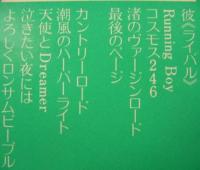 彼《ライバル》
Running Boy
コスモス246
渚のヴァージンロード
最後のページ
カントリーロード
潮風のハーバーライト
天使とDreamer
泣きたい夜には
よろしくロンサムピープル